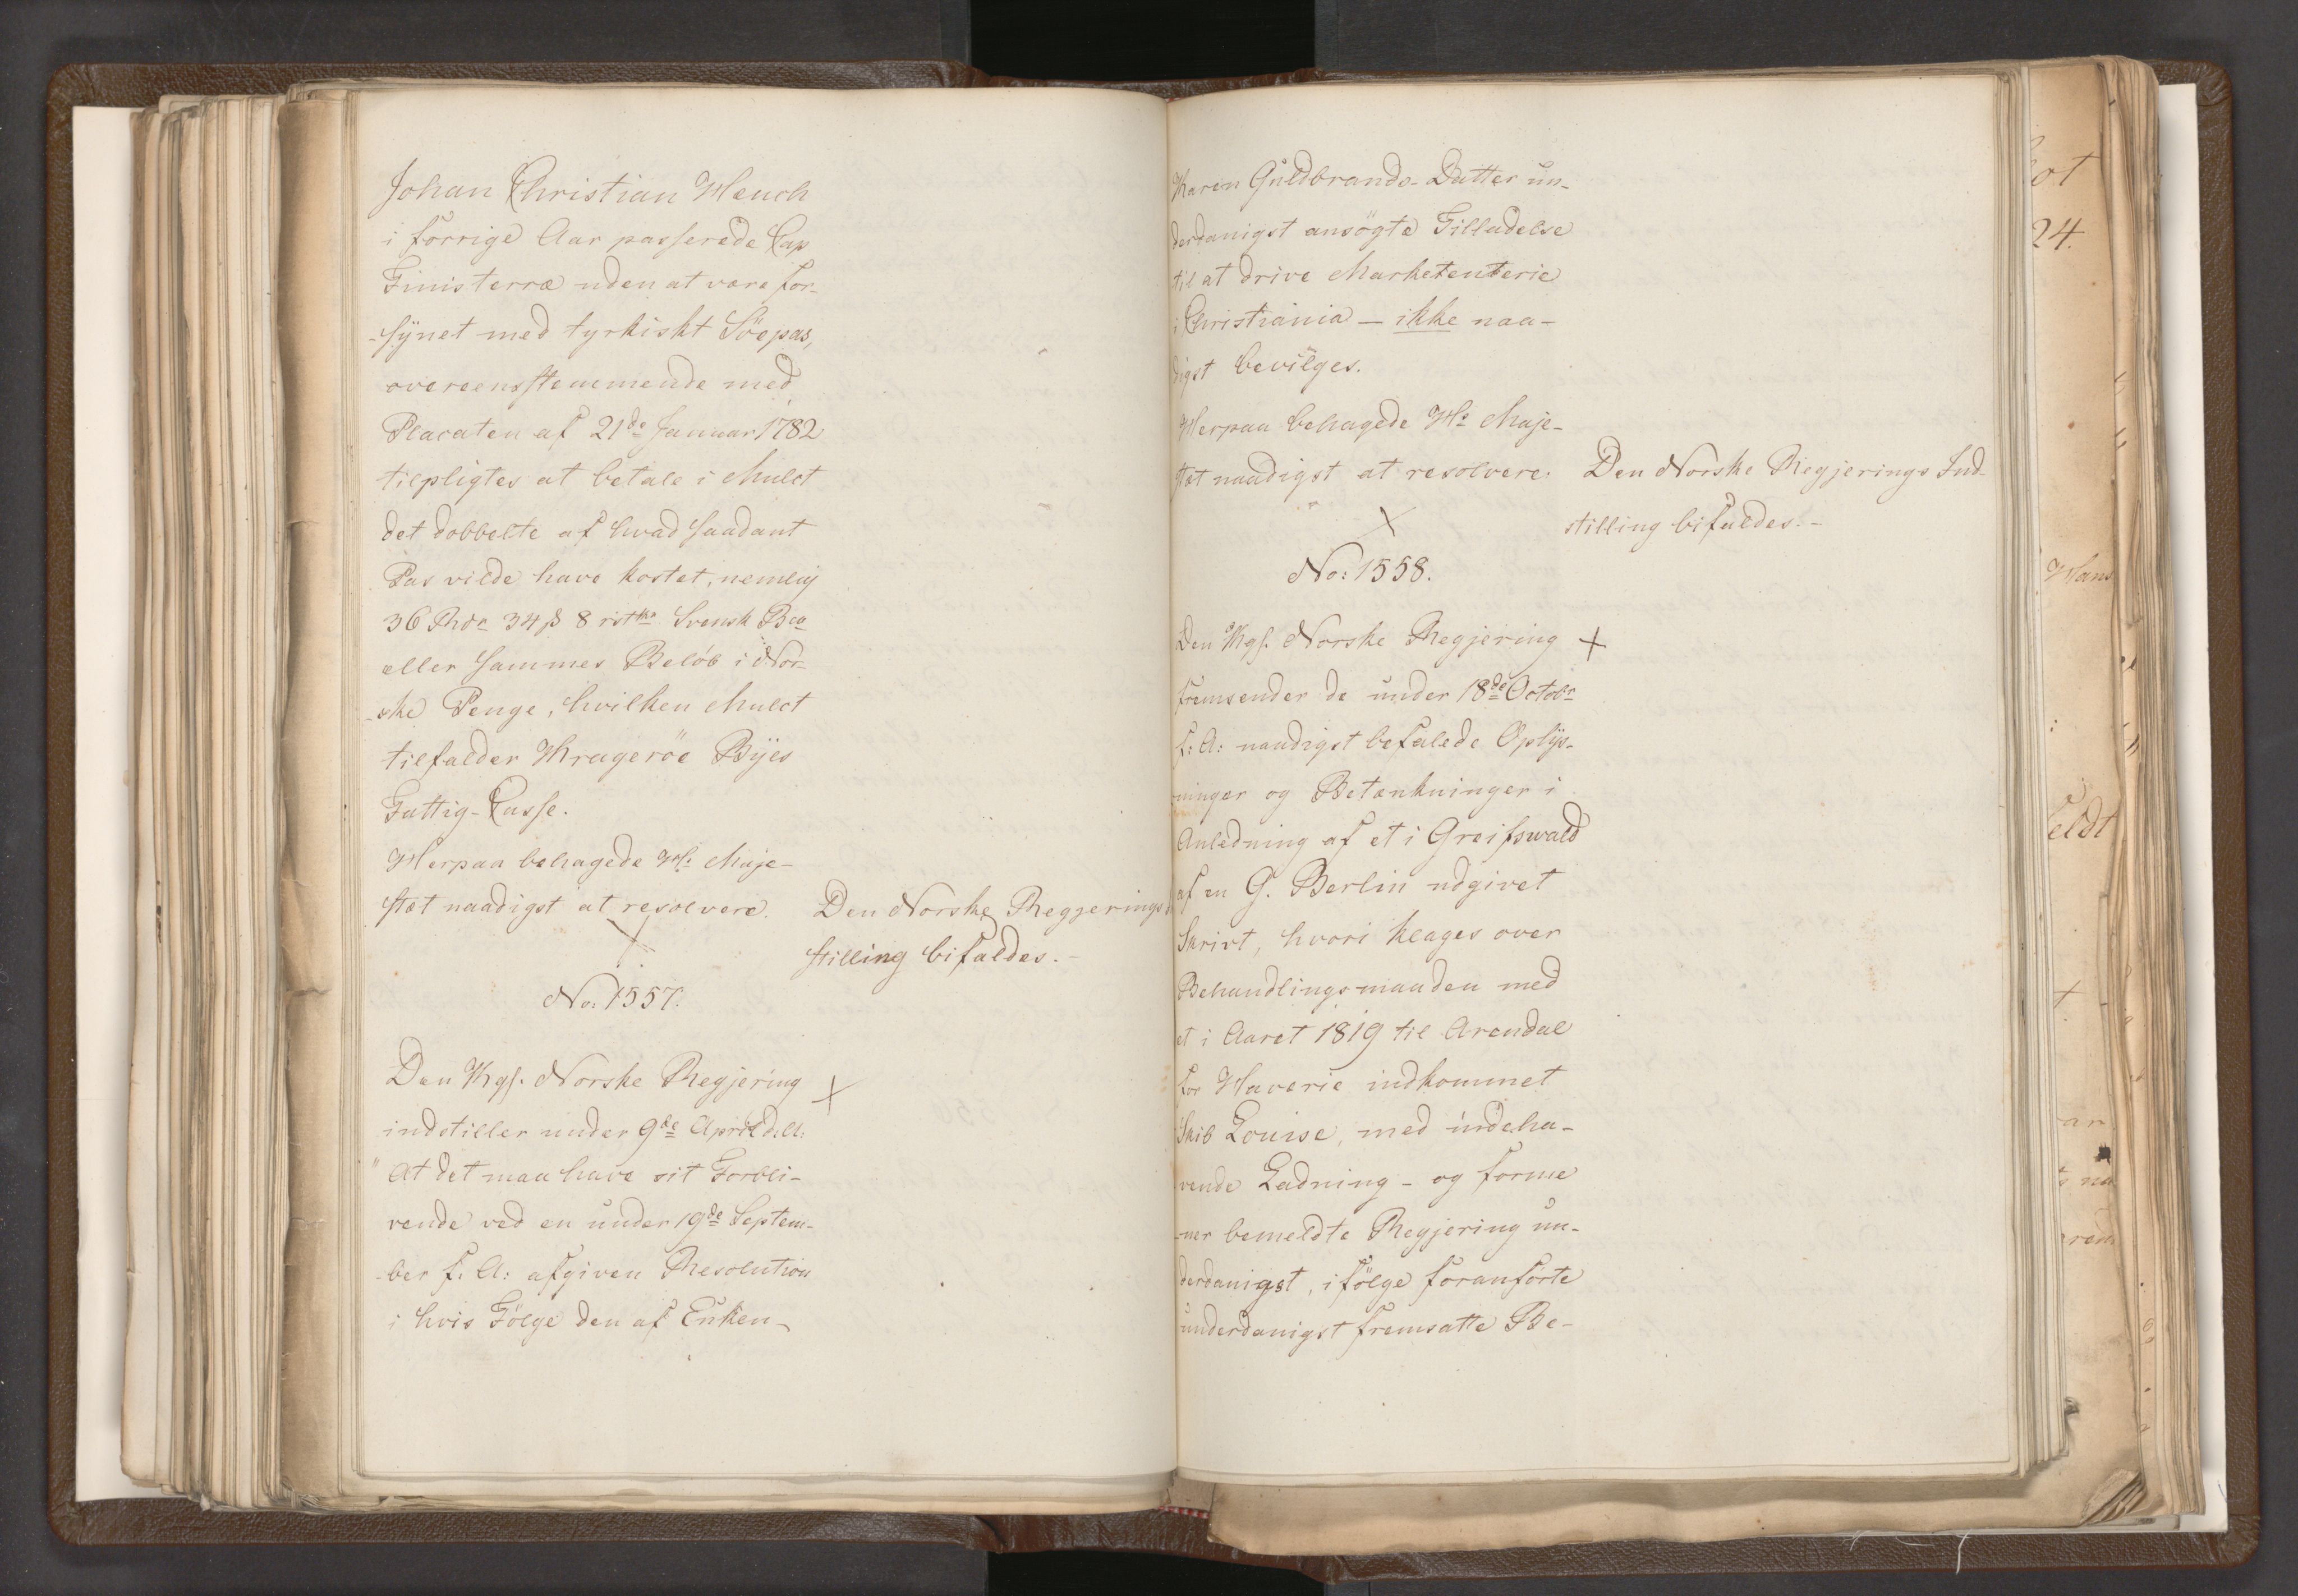 Johan Christian Heuch
i forrige Aar passerede Cap
Finisterræ uden at være for-
-synet med tyrkiskt Söepas,
overeensstemmende med
Placaten af 21de Januar 1782
tilpligtes at betale i Mulct
det dobbelte af hvad saadant
Pas vilde have kostet, nemlig
36 Rdr 34 ß 8 rstkr Svensk Bco
eller sammes Belöb i Nor-
-ske Penge, hvilken Mulct
tilfalder Krageröe Byes
Fattig-Casse.
Herpaa behagede Hs Maje-
stæt naadigst at resolvere.
Den Norske Regjerings
stilling bifaldes.-
No: 1557.
Den Kgs. Norske Regjering
indstiller under 9de April d: A:
"At det maa have sit Forbli-
vende ved en under 19de Septem-
-ber f. A: afgiven Resolution
i hvis Fölge den af Enken-
Karen Guldbrands-Datter un-
derdanigst ansögte Tilladelse
til at drive Marketenterie
i Christiania - ikke naa-
digst bevilges.
Herpaa behagede Hs Maje-
stæt naadigst at resolvere.
Den Norske Regjerings Ind-
stilling bifaldes.-
No: 1558.
Den Kgs. Norske Regjering
fremsender de under 18de Octobr
f: A: naadigst befalede Oplys-
ninger og Betænkninger i
Anledning af et i Greifswald
af en G. Berlin udgivet
Skrivt, hvori klages over
Behandlingsmaaden med
et i Aaret 1819 til Arendal
for Haverie indkommet
Skib Louise, med indeha-
vende Ladning - og forme
-ner bemeldte Regjering un-
derdanigst, i fölge foranförte
underdanigst fremsatte Be-
24.
Hans
eldt